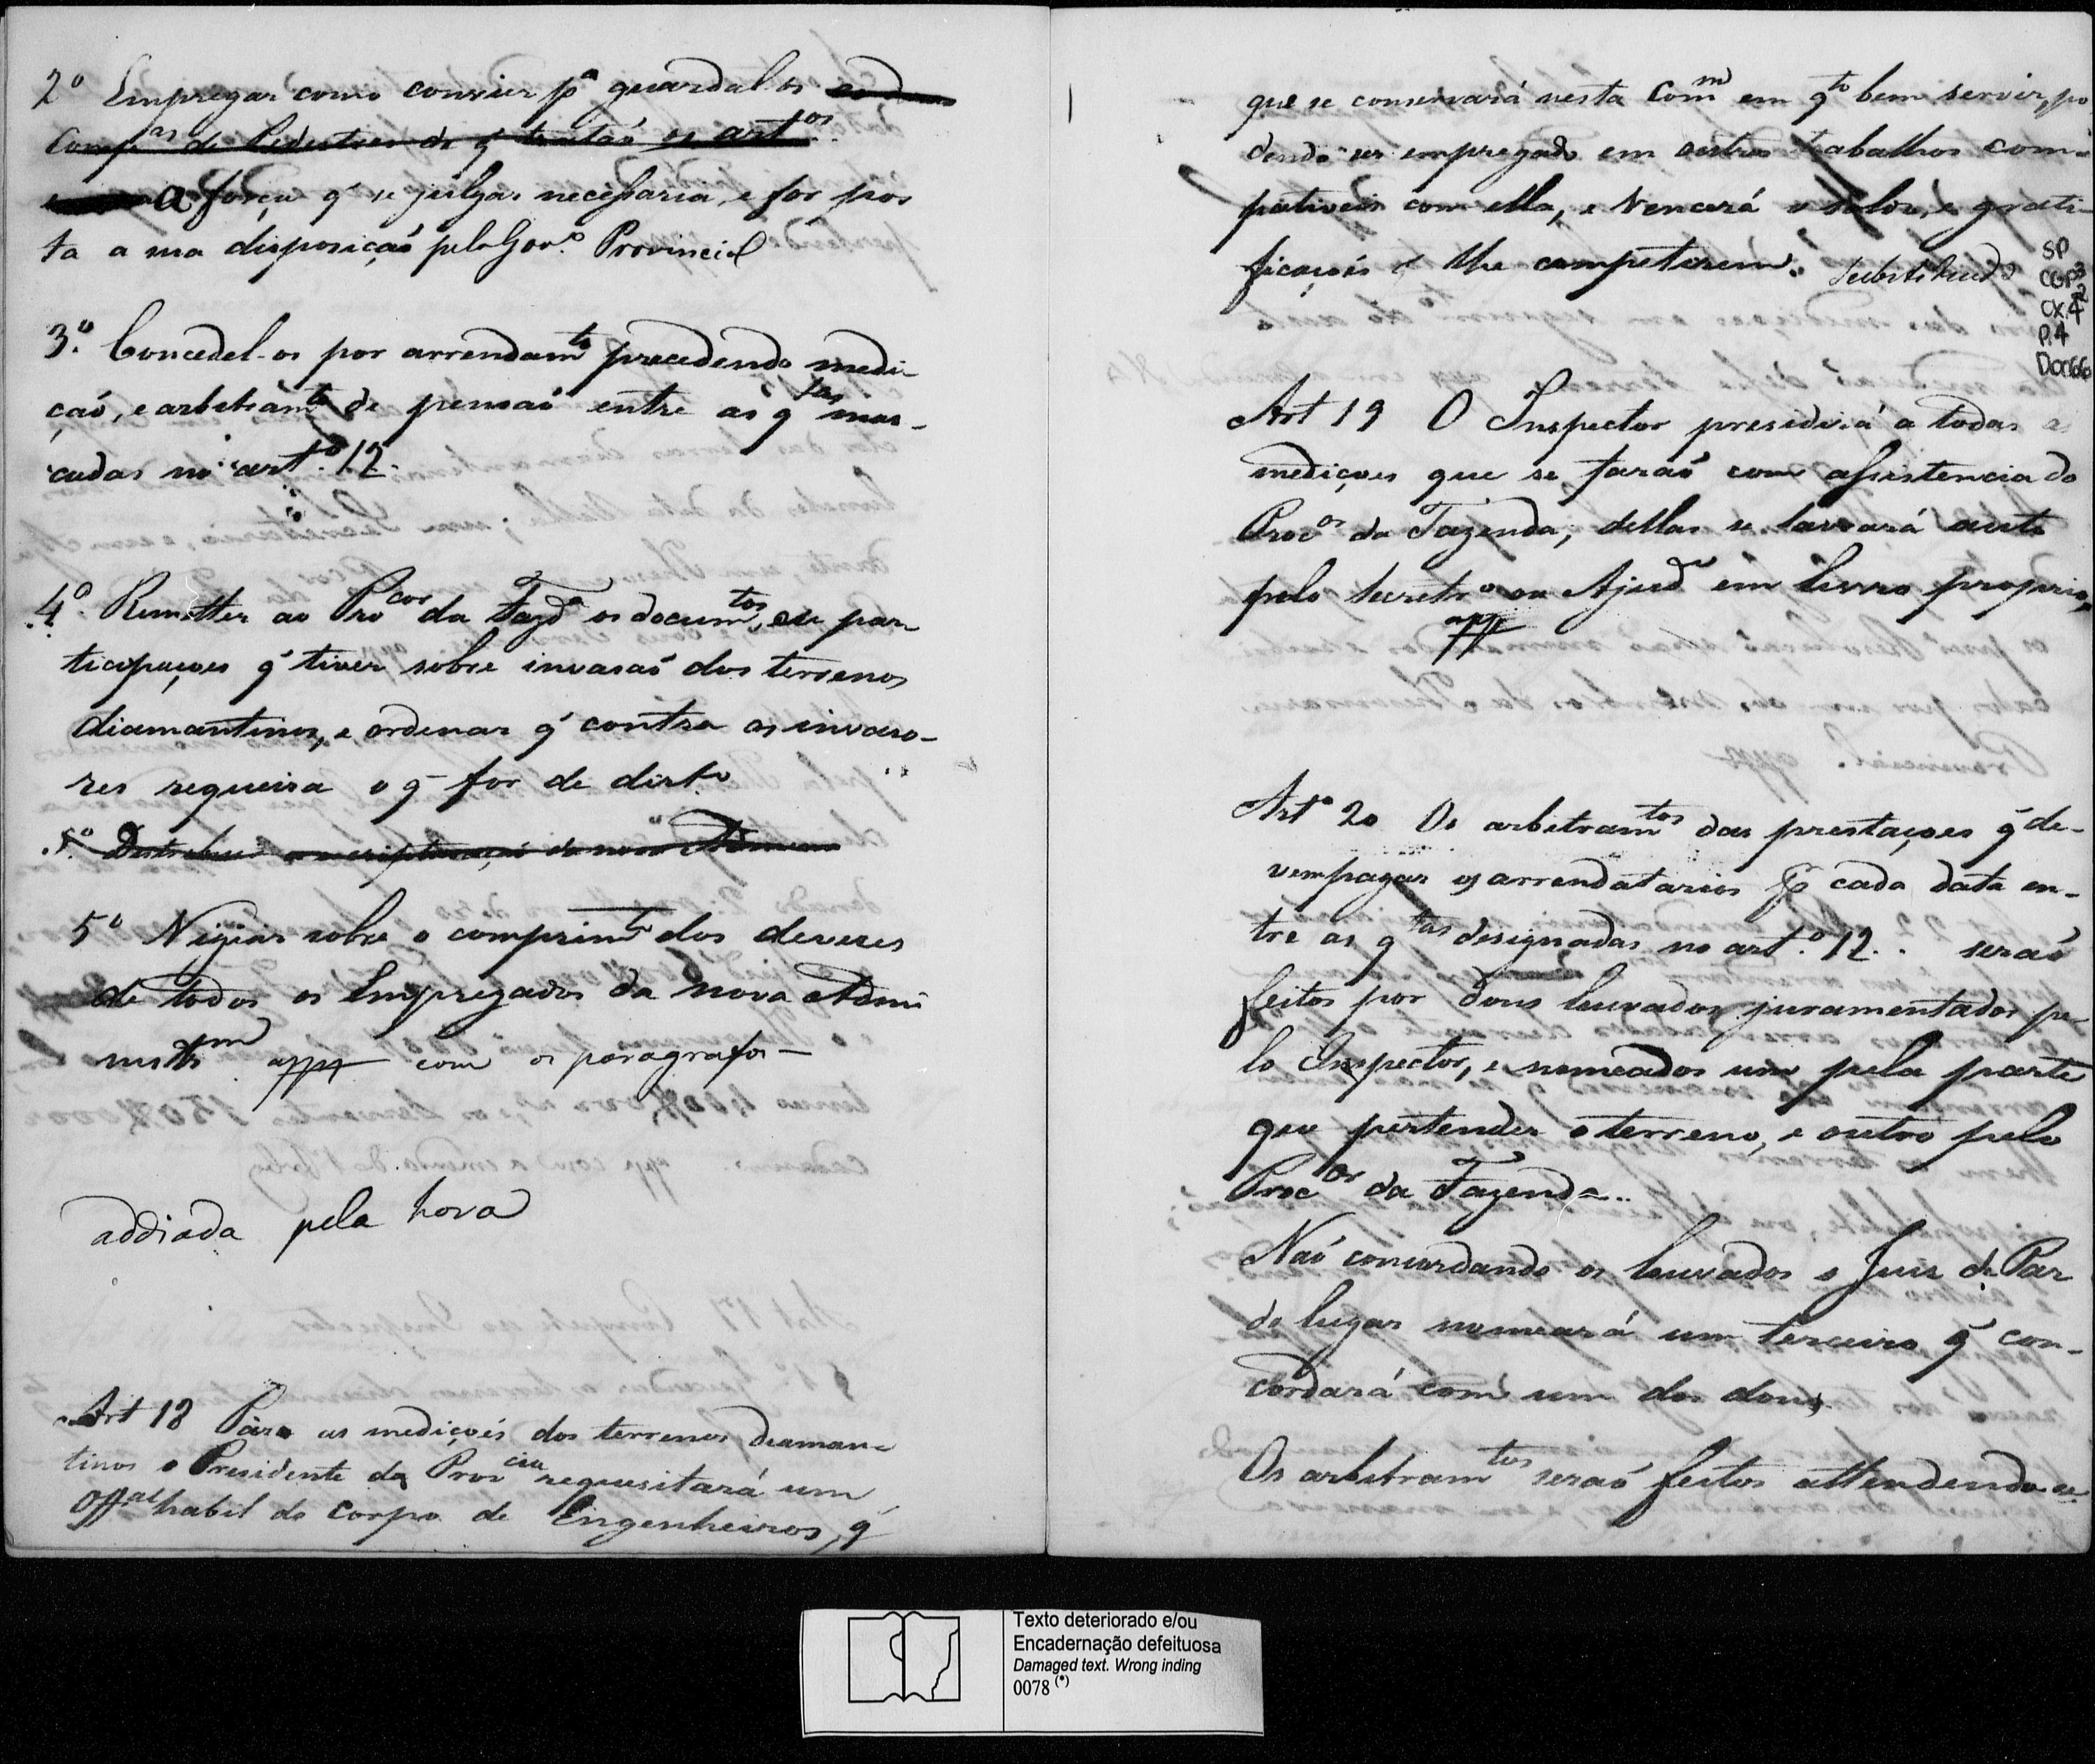 2º Empregar como convier pª guardal os
Compas de Pedestres de q̃ trataõ os artos
a força q̃ se julgar necessaria, e for pos
ta a sua disposiçaõ pelo Govº Provincial
3º Concedel-os por arrendamto precedendo medi-
çaõ, e arbitramto de pensaõ entre as qtas mar-
cadas no artº 12.
4º Remetter ao Procor da Fazdª os documtos, ou par-
ticipaçoes q̃ tiver sobre invasaõ dos terrenos
diamantinos, e ordenar q̃ contra os invaso-
res requeira o q̃ for de dirtº
5º Destribuir a escripturaçaõ da nova
5º Vigiar sobre o comprimto dos deveres
de todos os Empregados da nova Admi
nistram app com os paragrafos
addiada pela hora
Art 18 Para as mediçoẽs dos terrenos diaman-
tinos o Presidente da Provcia requesitará um
Offal habil do Corpo de Engenheiros, q̃
que se conservará nesta Comm em qto bem servir, po
dendo ser empregado em outros trabalhos com-
pativeis com ella, e vencerá o soldo, e grati-
ficaçoẽs q̃ lhe competirem. Substituido
SP
CGP3
CX.42
P.4
Doc66
Art 19 O Inspector presidirá a todas a
mediçoes que se faraõ com assistencia do
Procor da Fazenda; dellas se lavrará auto
pelo Secretrº ou Ajude em livro proprio,
app
Artº 20 Os arbitramtos das prestaçoes q̃ de-
vem pagar os arrendatarios pr cada data en-
tre as qtas designadas no artº 12. seraõ
feitos por dous louvados juramentados pe
lo Inspector, e nomeados um pela parte
que pertender o terreno, e outro pelo
Procor da Fazenda.
Naõ concordando os louvados o Juiz de Paz
do lugar nomeará um terceiro q̃ con-
cordará com um dos dous.
Os arbitramtos seraõ feitos attendendo-se
Texto deteriorado e/ou
Encadernação defeituosa
Damaged text. Wrong inding
0078 (*)